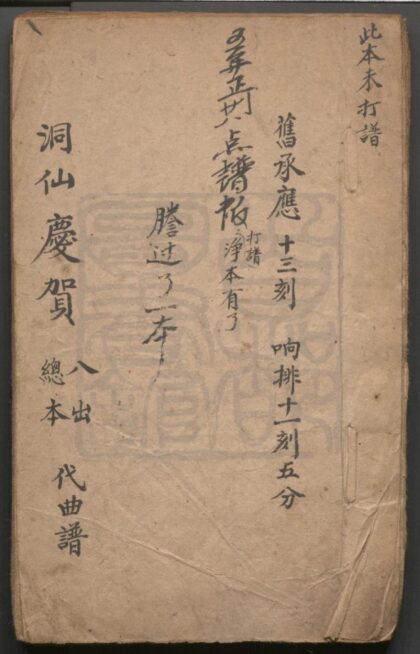 此本未打譜
舊承應 十三刻 响排十一刻五分
点譜板
打譜
淨本有了
謄过了一本
洞仙慶賀 八出
總本 代曲譜